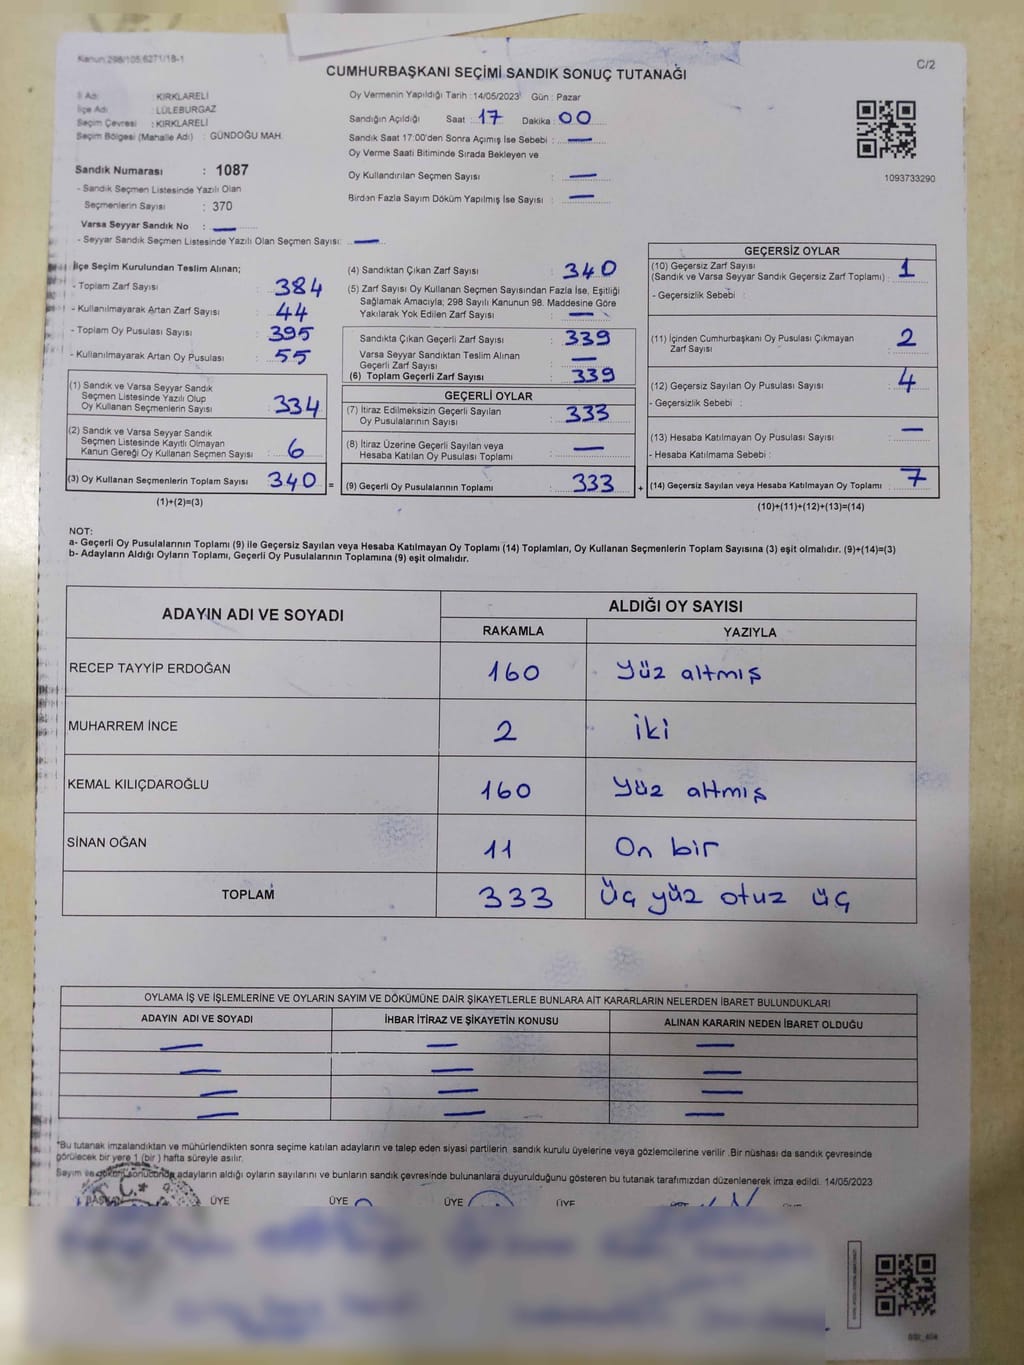 Kanun:298/105,6271/18-1
C/2
CUMHURBAŞKANI SEÇİMİ SANDIK SONUÇ TUTANAĞI
İl Adı : KIRKLARELİ
İlçe Adı : LÜLEBURGAZ
Seçim Çevresi : KIRKLARELİ
Seçim Bölgesi (Mahalle Adı) : GÜNDOĞU MAH.
Sandık Numarası : 1087
- Sandık Seçmen Listesinde Yazılı Olan
Seçmenlerin Sayısı : 370
Varsa Seyyar Sandık No : —
- Seyyar Sandık Seçmen Listesinde Yazılı Olan Seçmen Sayısı: —
Oy Vermenin Yapıldığı Tarih :14/05/2023 Gün : Pazar
Sandığın Açıldığı Saat : 17 Dakika : 00
Sandık Saat 17:00'den Sonra Açımış İse Sebebi : —
Oy Verme Saati Bitiminde Sırada Bekleyen ve
Oy Kullandırılan Seçmen Sayısı : —
Birden Fazla Sayım Döküm Yapılmış İse Sayısı : —
1093733290
İlçe Seçim Kurulundan Teslim Alınan;
- Toplam Zarf Sayısı : 384
- Kullanılmayarak Artan Zarf Sayısı : 44
- Toplam Oy Pusulası Sayısı : 395
- Kullanılmayarak Artan Oy Pusulası : 55
(1) Sandık ve Varsa Seyyar Sandık
Seçmen Listesinde Yazılı Olup
Oy Kullanan Seçmenlerin Sayısı : 334
(2) Sandık ve Varsa Seyyar Sandık
Seçmen Listesinde Kayıtlı Olmayan
Kanun Gereği Oy Kullanan Seçmen Sayısı : 6
(3) Oy Kullanan Seçmenlerin Toplam Sayısı : 340 =
(1)+(2)=(3)
(4) Sandıktan Çıkan Zarf Sayısı : 340
(5) Zarf Sayısı Oy Kullanan Seçmen Sayısından Fazla İse, Eşitliği
Sağlamak Amacıyla; 298 Sayılı Kanunun 98. Maddesine Göre
Yakılarak Yok Edilen Zarf Sayısı : —
Sandıkta Çıkan Geçerli Zarf Sayısı : 339
Varsa Seyyar Sandıktan Teslim Alınan
Geçerli Zarf Sayısı : —
(6) Toplam Geçerli Zarf Sayısı : 339
GEÇERLİ OYLAR
(7) İtiraz Edilmeksizin Geçerli Sayılan
Oy Pusulalarının Sayısı : 333
(8) İtiraz Üzerine Geçerli Sayılan veya
Hesaba Katılan Oy Pusulası Toplamı : —
(9) Geçerli Oy Pusulalarının Toplamı : 333 +
GEÇERSİZ OYLAR
(10) Geçersiz Zarf Sayısı
(Sandık ve Varsa Seyyar Sandık Geçersiz Zarf Toplamı) : 1
- Geçersizlik Sebebi :
(11) İçinden Cumhurbaşkanı Oy Pusulası Çıkmayan
Zarf Sayısı : 2
(12) Geçersiz Sayılan Oy Pusulası Sayısı : 4
- Geçersizlik Sebebi :
(13) Hesaba Katılmayan Oy Pusulası Sayısı : —
- Hesaba Katılmama Sebebi :
(14) Geçersiz Sayılan veya Hesaba Katılmayan Oy Toplamı : 7
(10)+(11)+(12)+(13)=(14)
NOT:
a- Geçerli Oy Pusulalarının Toplamı (9) ile Geçersiz Sayılan veya Hesaba Katılmayan Oy Toplamı (14) Toplamları, Oy Kullanan Seçmenlerin Toplam Sayısına (3) eşit olmalıdır. (9)+(14)=(3)
b- Adayların Aldığı Oyların Toplamı, Geçerli Oy Pusulalarının Toplamına (9) eşit olmalıdır.
ADAYIN ADI VE SOYADI
ALDIĞI OY SAYISI
RAKAMLA YAZIYLA
RECEP TAYYİP ERDOĞAN 160 Yüz altmış
MUHARREM İNCE 2 iki
KEMAL KILIÇDAROĞLU 160 Yüz altmış
SİNAN OĞAN 11 On bir
TOPLAM 333 Üç yüz otuz üç
OYLAMA İŞ VE İŞLEMLERİNE VE OYLARIN SAYIM VE DÖKÜMÜNE DAİR ŞİKAYETLERLE BUNLARA AİT KARARLARIN NELERDEN İBARET BULUNDUKLARI
ADAYIN ADI VE SOYADI İHBAR İTİRAZ VE ŞİKAYETİN KONUSU ALINAN KARARIN NEDEN İBARET OLDUĞU
— — —
— — —
— — —
— — —
*Bu tutanak imzalandıktan ve mühürlendikten sonra seçime katılan adayların ve talep eden siyasi partilerin sandık kurulu üyelerine veya gözlemcilerine verilir .Bir nüshası da sandık çevresinde
görülecek bir yere 1 (bir ) hafta süreyle asılır.
Sayım ve döküm sonucunda adayların aldığı oyların sayılarını ve bunların sandık çevresinde bulunanlara duyurulduğunu gösteren bu tutanak tarafımızdan düzenlenerek imza edildi. 14/05/2023
BAŞKAN ÜYE ÜYE ÜYE ÜYE
T.C.